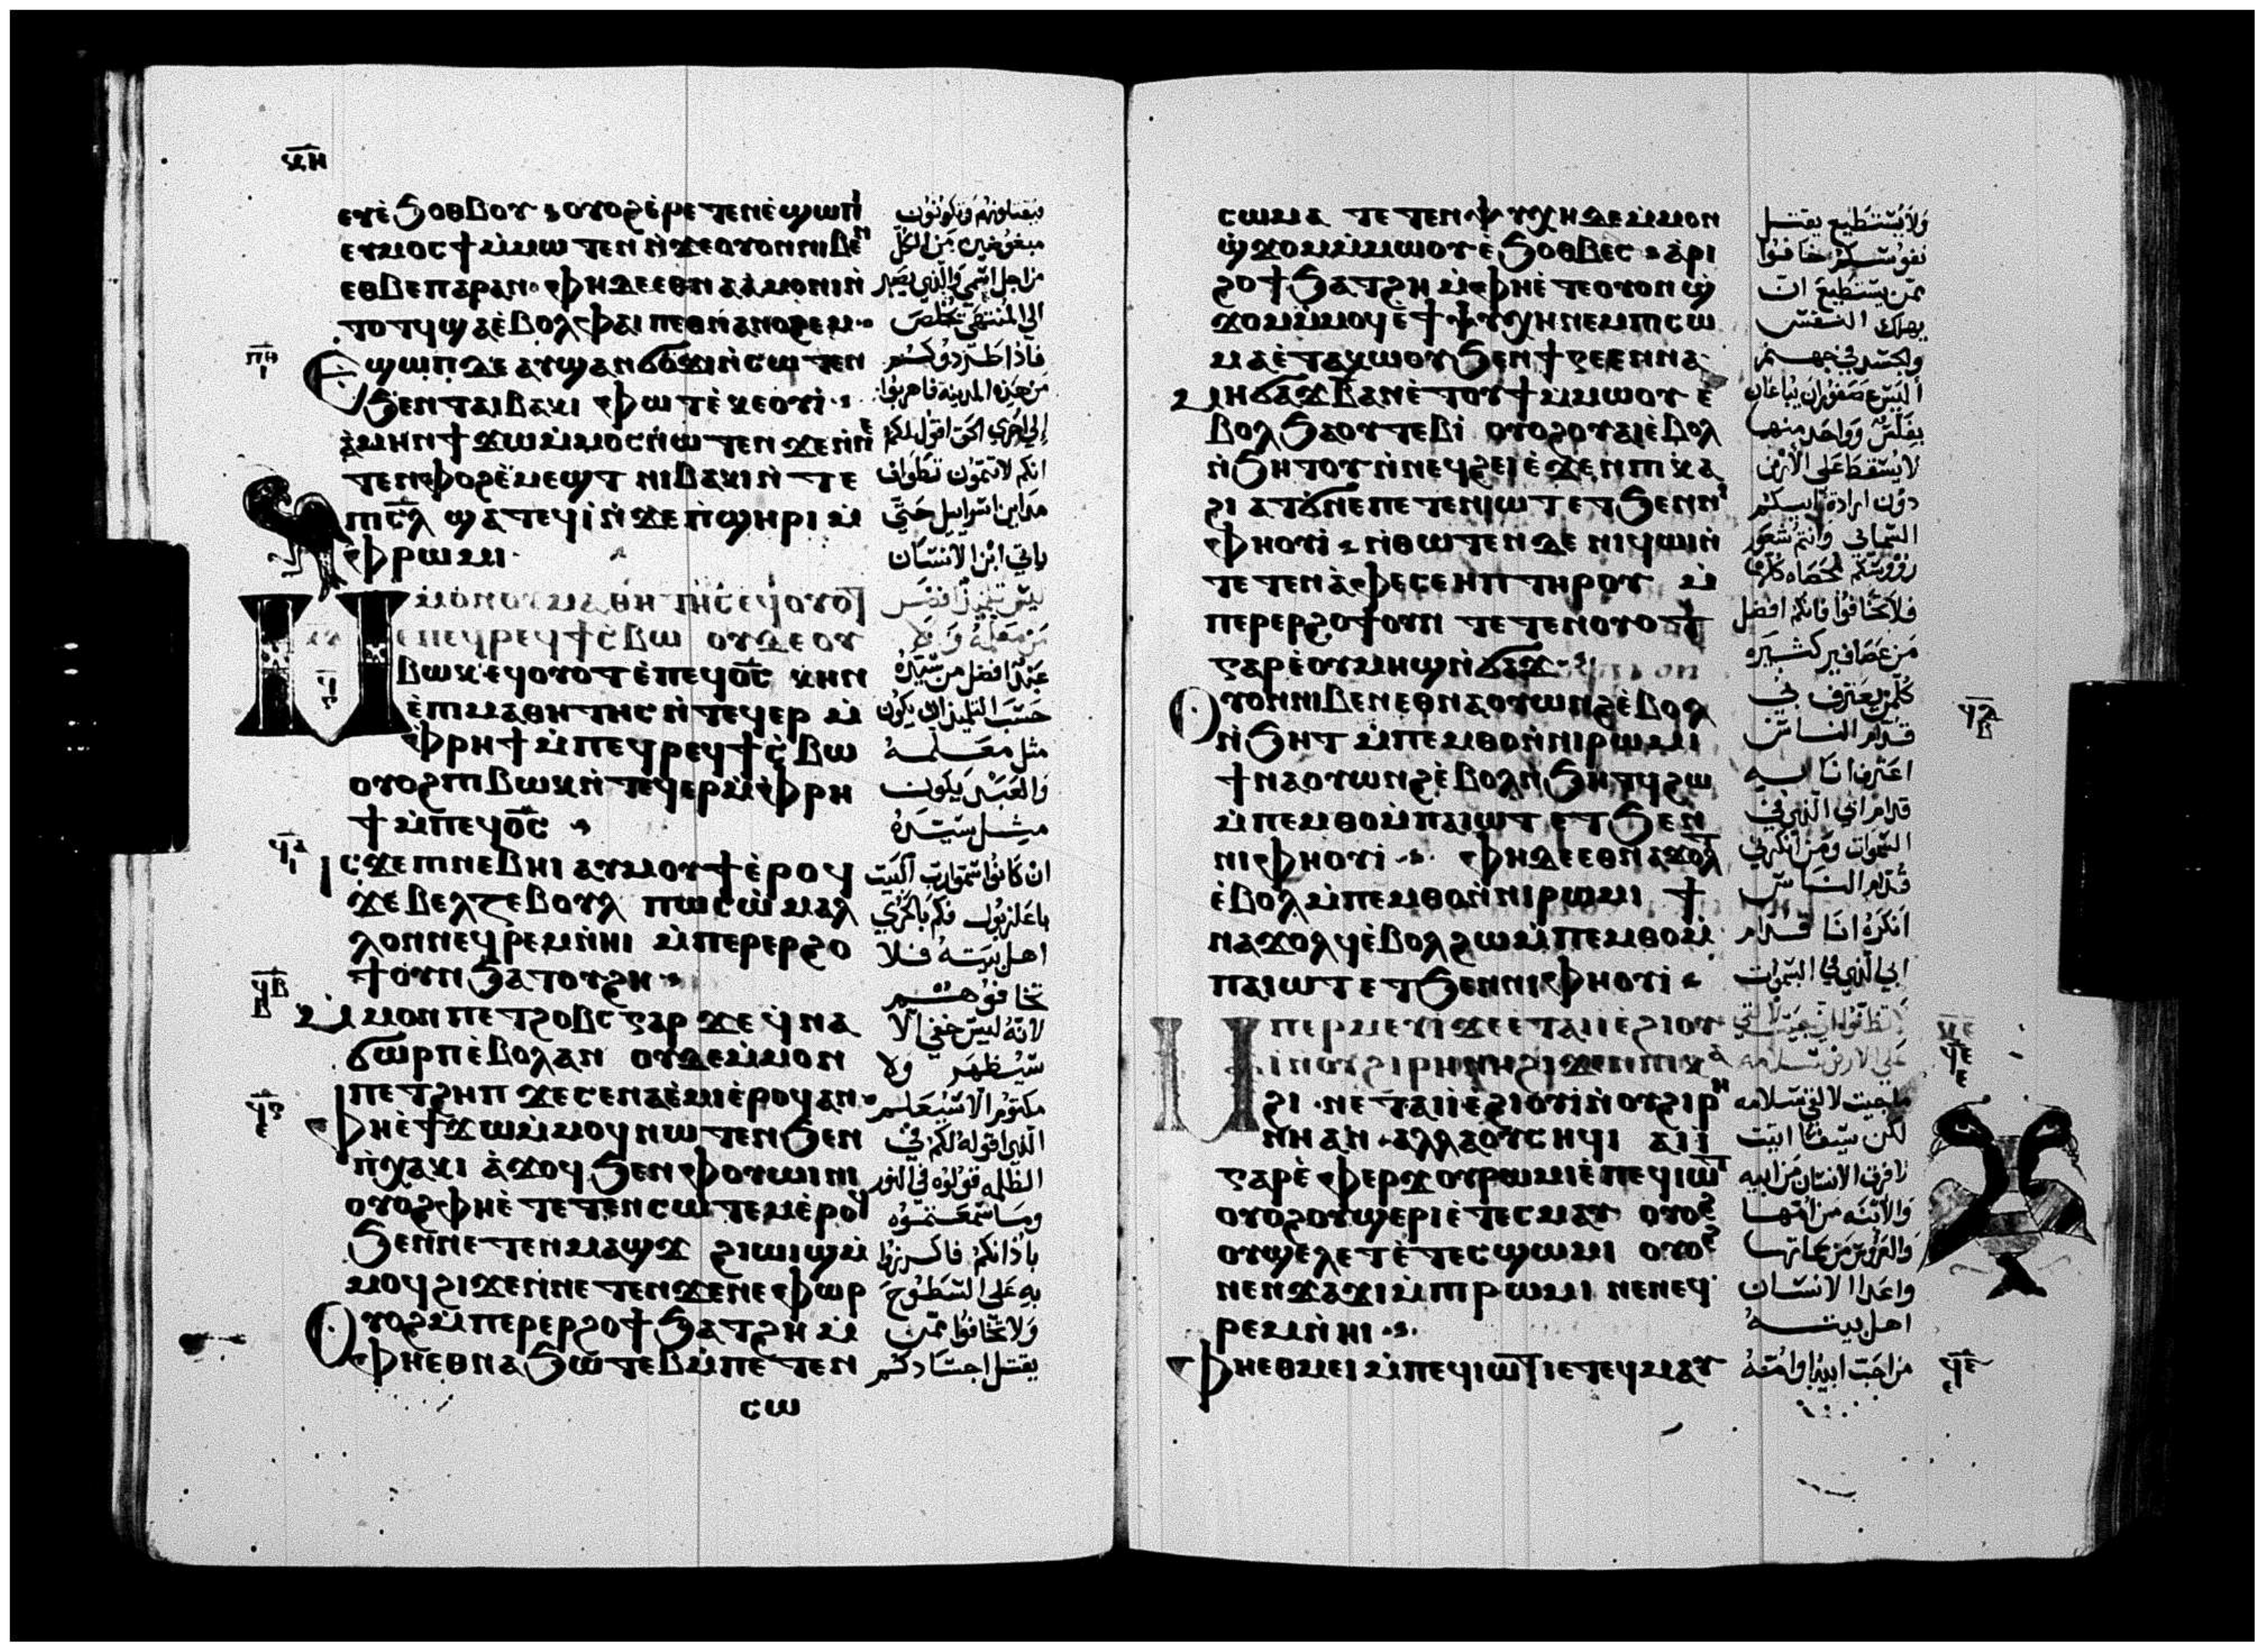 ⲕ̅ⲏ̅
ⲉⲩⲉ̀ϧⲟⲑⲃⲟⲩ ⲟⲩⲟϩ ⲉ̀ⲣⲉⲧⲉⲛⲉ̀ϣⲱⲡⲓ
ⲉⲩⲙⲟⲥϯ ⲙ̀ⲙⲱⲧⲉⲛ ⲛ̀ϫⲉⲟⲩⲟⲛⲛⲓⲃⲉⲛ
ⲉⲑⲃⲉⲡⲁⲣⲁⲛ ⲫⲏⲇⲉⲉⲑⲛⲁⲁ̀ⲙⲟⲛⲓⲛ̀
ⲧⲟⲧϥϣⲁⲉ̀ⲃⲟⲗ ⲫⲁⲓ ⲡⲉⲑⲛⲁⲛⲟϩⲉⲙ
ⲡ̅ⲑ̅
ⲉϣⲱⲡⲇⲉ ⲁⲩϣⲁⲛϭⲟϫⲓⲛ̀ⲥⲱⲧⲉⲛ
ϧⲉⲛⲧⲁⲓⲃⲁⲕⲓ ⲫⲱⲧ ⲉ̀ⲕⲉⲟⲩⲓ̀
ⲁ̀ⲙⲏⲛ ϯϫⲱⲙ̀ⲙⲟⲥⲛⲱⲧⲉⲛ ϫⲉⲛ̀ⲛⲉ
ⲧⲉⲛⲫⲟϩ ⲉ̀ⲙⲉϣⲧ ⲛⲓⲃⲁⲕⲓ ⲛ̀ⲧⲉ
ⲡⲓⲥ̅ⲗ̅ ϣⲁⲧⲉϥⲓ̀ ⲛ̀ϫⲉⲡ̀ϣⲏⲣⲓ ⲙ̀
ⲫⲣⲱⲙⲓ
ⲙ̀ⲙⲟⲛⲟⲩⲙⲁⲑⲏⲧⲏⲥ ⲉϥⲟⲩⲟⲧ
ⲉⲡⲉϥⲣⲉϥϯⲥ̀ⲃⲱ ⲟⲩⲇⲉⲟⲩ
ⲃⲱⲕ ⲉϥⲟⲩⲟⲧ ⲉ̀ⲡⲉϥⲟ̅ⲥ̅ ⲕⲏⲛ
ⲉ̀ⲡⲓⲙⲁⲑⲏⲧⲏⲥ ⲛ̀ⲧⲉϥⲉⲣ ⲙ̀
ⲫⲣⲏϯ ⲙ̀ⲡⲉϥⲣⲉϥϯⲥ̀ⲃⲱ
ⲟⲩⲟϩ ⲡⲓⲃⲱⲕ ⲛ̀ⲧⲉϥⲉⲣⲙ̀ⲫⲣⲏ
ϯ ⲙ̀ⲡⲉϥⲟ̅ⲥ̅
ⲓⲥϫⲉⲡⲓⲛⲉⲃⲏⲓ ⲁⲩⲙⲟⲩϯ ⲉ̀ⲣⲟϥ
ϫⲉⲃⲉⲗⲍⲉⲃⲟⲩⲗ ⲡⲱⲥⲱ̀ⲙⲁⲗ
ⲗⲟⲛⲛⲉϥⲣⲉⲙⲛ̀ⲏⲓ ⲙ̀ⲡⲉⲣⲉⲣϩⲟ
ϯⲟⲩⲛ ϧⲁⲧⲟⲩϩⲏ
ϥ̅ⲃ̅
ⲙ̀ⲙⲟⲛⲡⲉⲧϩⲟⲃⲥ ⲅⲁⲣ ϫⲉ ϥ̀ⲛⲁ
ϭⲱⲣⲡ ⲉ̀ⲃⲟⲗⲁⲛ ⲟⲩⲇⲉⲙ̀ⲙⲟⲛ
ⲡⲉⲧϩⲏⲡ ϫⲉⲥⲉⲛⲁⲉ̀ⲙⲓⲉ̀ⲣⲟϥⲁⲛ
ⲫⲏⲉ̀ϯϫⲱⲙ̀ⲙⲟϥⲛⲱⲧⲉⲛϧⲉⲛ
ⲡ̀ⲭⲁⲕⲓ ⲁ̀ϫⲟϥ ϧⲉⲛⲫⲟⲩⲱⲓⲛⲓ
ⲟⲩⲟϩ ⲫⲏⲉ̀ⲧⲉⲧⲉⲛⲥⲱⲧⲉⲙⲉ̀ⲣⲟϥ
ϧⲉⲛⲛⲉⲧⲉⲛⲙⲁϣϫ ϩⲓⲱⲓϣⲙ̀
ⲙⲟϥ ϩⲓϫⲉⲛⲛⲉⲧⲉⲛϫⲉⲛⲉⲫⲱⲣ
ⲟⲩⲟϩⲙ̀ⲡⲉⲣⲉⲣϩⲟϯ ϧⲁⲧϩⲏ ⲙ̀
ⲫⲏⲉⲑⲛⲁϧⲱⲧⲉⲃⲙ̀ⲡⲉⲧⲉⲛ
ⲥⲱ
فيقتلونهم وتكونون
مبغوضين من الكل
من اجل اسمي والذي يصبر
الي المنتهي يخلص
فاذا طردوكم
من هذه المدينة فاهربوا
إلي اخري الحق اقول لكم
انكم لا تتمون تطواف
مداين اسراييل حتي
ياتي ابن الانسان
ليس تلميذ افضل
من معلمه ولا
عبدا افضل من سيده
حسب التلميذ ان يكون
مثل معلمه
والعبد يكون
مثل سيده
ان كانوا سموا رب البيت
باعلزبول فكم بالحري
اهل بيته فلا
تخافوهم
لانه ليس خفي الا
سيظهر ولا
مكتوم الا سيعلم
الذي اقوله لكم في
الظلمه قولوه في النور
وما سمعتموه
باذانكم فاكرزوا
به علي السطوح
ولا تخافوا ممن
يقتل اجسادكم
ⲥⲱⲙⲁ ⲧⲉⲧⲉⲛⲯⲩⲭⲏⲇⲉⲙ̀ⲙⲟⲛ
ϣϫⲟⲙⲙ̀ⲙⲱⲟⲩ ⲉ̀ϧⲟⲑⲃⲉⲥ ⲁ̀ⲣⲓ
ϩⲟϯ ϧⲁⲧϩⲏ ⲙ̀ⲫⲏⲉ̀ⲧⲉⲟⲩⲟⲛϣ
ϫⲟⲙⲙ̀ⲙⲟϥ ⲉ̀ϯⲯⲩⲭⲏⲛⲉⲙⲡⲓⲥⲱ
ⲙⲁⲉ̀ⲧⲁⲕⲱⲟⲩϧⲉⲛϯⲅⲉⲉⲛⲛⲁ
ⲙⲏϭⲁϫⲃⲁⲛⲉ̀ⲧⲟⲩϯⲙ̀ⲙⲱⲟⲩ ⲉ̀
ⲃⲟⲗ ϧⲁⲟⲩⲧⲉⲃⲓ ⲟⲩⲟϩⲟⲩⲁⲓⲉ̀ⲃⲟⲗ
ⲛ̀ϧⲏⲧⲟⲩⲛ̀ⲛⲉϥϩⲉⲓⲉ̀ϫⲉⲛⲡⲓⲕⲁ
ϩⲓ ⲁⲧϭⲛⲉⲡⲉⲧⲉⲛⲓⲱⲧ ⲉⲧϧⲉⲛⲛⲓ
ⲫⲏⲟⲩⲓ̀ ⲛ̀ⲑⲱⲧⲉⲛⲇⲉ ⲛⲓϥⲱⲓⲛ̀
ⲧⲉⲧⲉⲛⲁ̀ⲫⲉⲥⲉⲏⲡ ⲧⲏⲣⲟⲩ ⲙ̀
ⲡⲉⲣⲉⲣϩⲟϯⲟⲩⲛ ⲧⲉⲧⲉⲛⲟⲩⲟⲧ
ⲅⲁⲣⲉ̀ⲟⲩⲙⲏϣⲛ̀ϭⲁϫ
ⲟⲩⲟⲛⲛⲓⲃⲉⲛⲉⲑⲛⲁⲟⲩⲱⲛϩⲉ̀ⲃⲟⲗ
ⲛ̀ϧⲏⲧ ⲙ̀ⲡⲉⲙⲑⲟⲛ̀ⲛⲓⲣⲱⲙⲓ
ϯⲛⲁⲟⲩⲱⲛϩⲉ̀ⲃⲟⲗⲛ̀ϧⲏⲧϥϩⲱ
ⲙ̀ⲡⲉⲙⲑⲟⲙ̀ⲡⲁⲓⲱⲧ ⲉⲧϧⲉⲛ
ⲛⲓⲫⲏⲟⲩⲓ̀ ⲫⲏⲇⲉⲉⲑⲛⲁϫⲟⲗⲧ
ⲉ̀ⲃⲟⲗⲙ̀ⲡⲉⲙⲑⲟⲛ̀ⲛⲓⲣⲱⲙⲓ ϯ
ⲛⲁϫⲟⲗϥⲉ̀ⲃⲟⲗϩⲱⲙ̀ⲡⲉⲙⲑⲟⲙ̀
ⲡⲁⲓⲱⲧ ⲉⲧϧⲉⲛⲛⲓⲫⲏⲟⲩⲓ̀
ⲙⲡⲉⲣⲙⲉⲩⲓ ϫⲉ ⲉⲧⲁⲓⲓ̀ ⲉ̀ϩⲓⲟⲩ
ⲓ̀ⲛⲟⲩϩⲓⲣⲏⲛⲏϩⲓϫⲉⲛⲡⲓⲕⲁ
ϩⲓ ⲛⲉⲧⲁⲓⲓ̀ⲉ̀ϩⲓⲟⲩⲓ̀ⲛ̀ⲟⲩϩⲓⲣⲏ
ⲛⲏⲁⲛ ⲁⲗⲗⲁⲟⲩⲥⲏϥⲓ ⲁⲓⲓ̀
ⲅⲁⲣⲉ̀ⲫⲉⲣϫⲟⲩⲣⲱⲙⲓⲉ̀ⲡⲉϥⲓⲱⲧ
ⲟⲩⲟϩⲟⲩϣⲉⲣⲓⲉ̀ⲧⲉⲥⲙⲁⲩ ⲟⲩⲟϩ
ⲟⲩϣⲉⲗⲉⲧⲉ̀ⲧⲉⲥϣⲱⲙⲓ ⲟⲩⲟϩ
ⲛⲉⲛϫⲁϫⲓⲙ̀ⲡⲓⲣⲱⲙⲓ ⲛⲉⲛⲉϥ
ⲣⲉⲙⲛ̀ⲏⲓ
ⲫⲏⲉⲑⲙⲉⲓⲙ̀ⲡⲉϥⲓⲱⲧ ⲓⲉⲧⲉϥⲙⲁⲩ
ولا يستطيع يقتل
نفوسكم خافوا
ممن يستطيع ان
يهلك النفس
والجسد في جهنم
اليس عصفوران يباعان
بفلس وواحد منهما
لا يسقط علي الارض
دون ارادة ابيكم
السماني وانتم شعور
رؤوسكم محصاه كلها
فلا تخافوا فانكم افضل
من عصافير كثيره
كل من يعترف بي
قدام الناس
اعترف انا به
قدام ابي الذي في
السموات ومن انكرني
قدام الناس
انكره انا قدام
ابي الذي في السموات
لا تظنوا اني جيت لالقي
علي الارض سلامه
ما جيت لالقي سلامه
لكن سيفا اتيت
لافرق الانسان من ابيه
والابنه من امها
والعروس من حماتها
واعدا الانسان
اهل بيته
من احب ابيه او امه